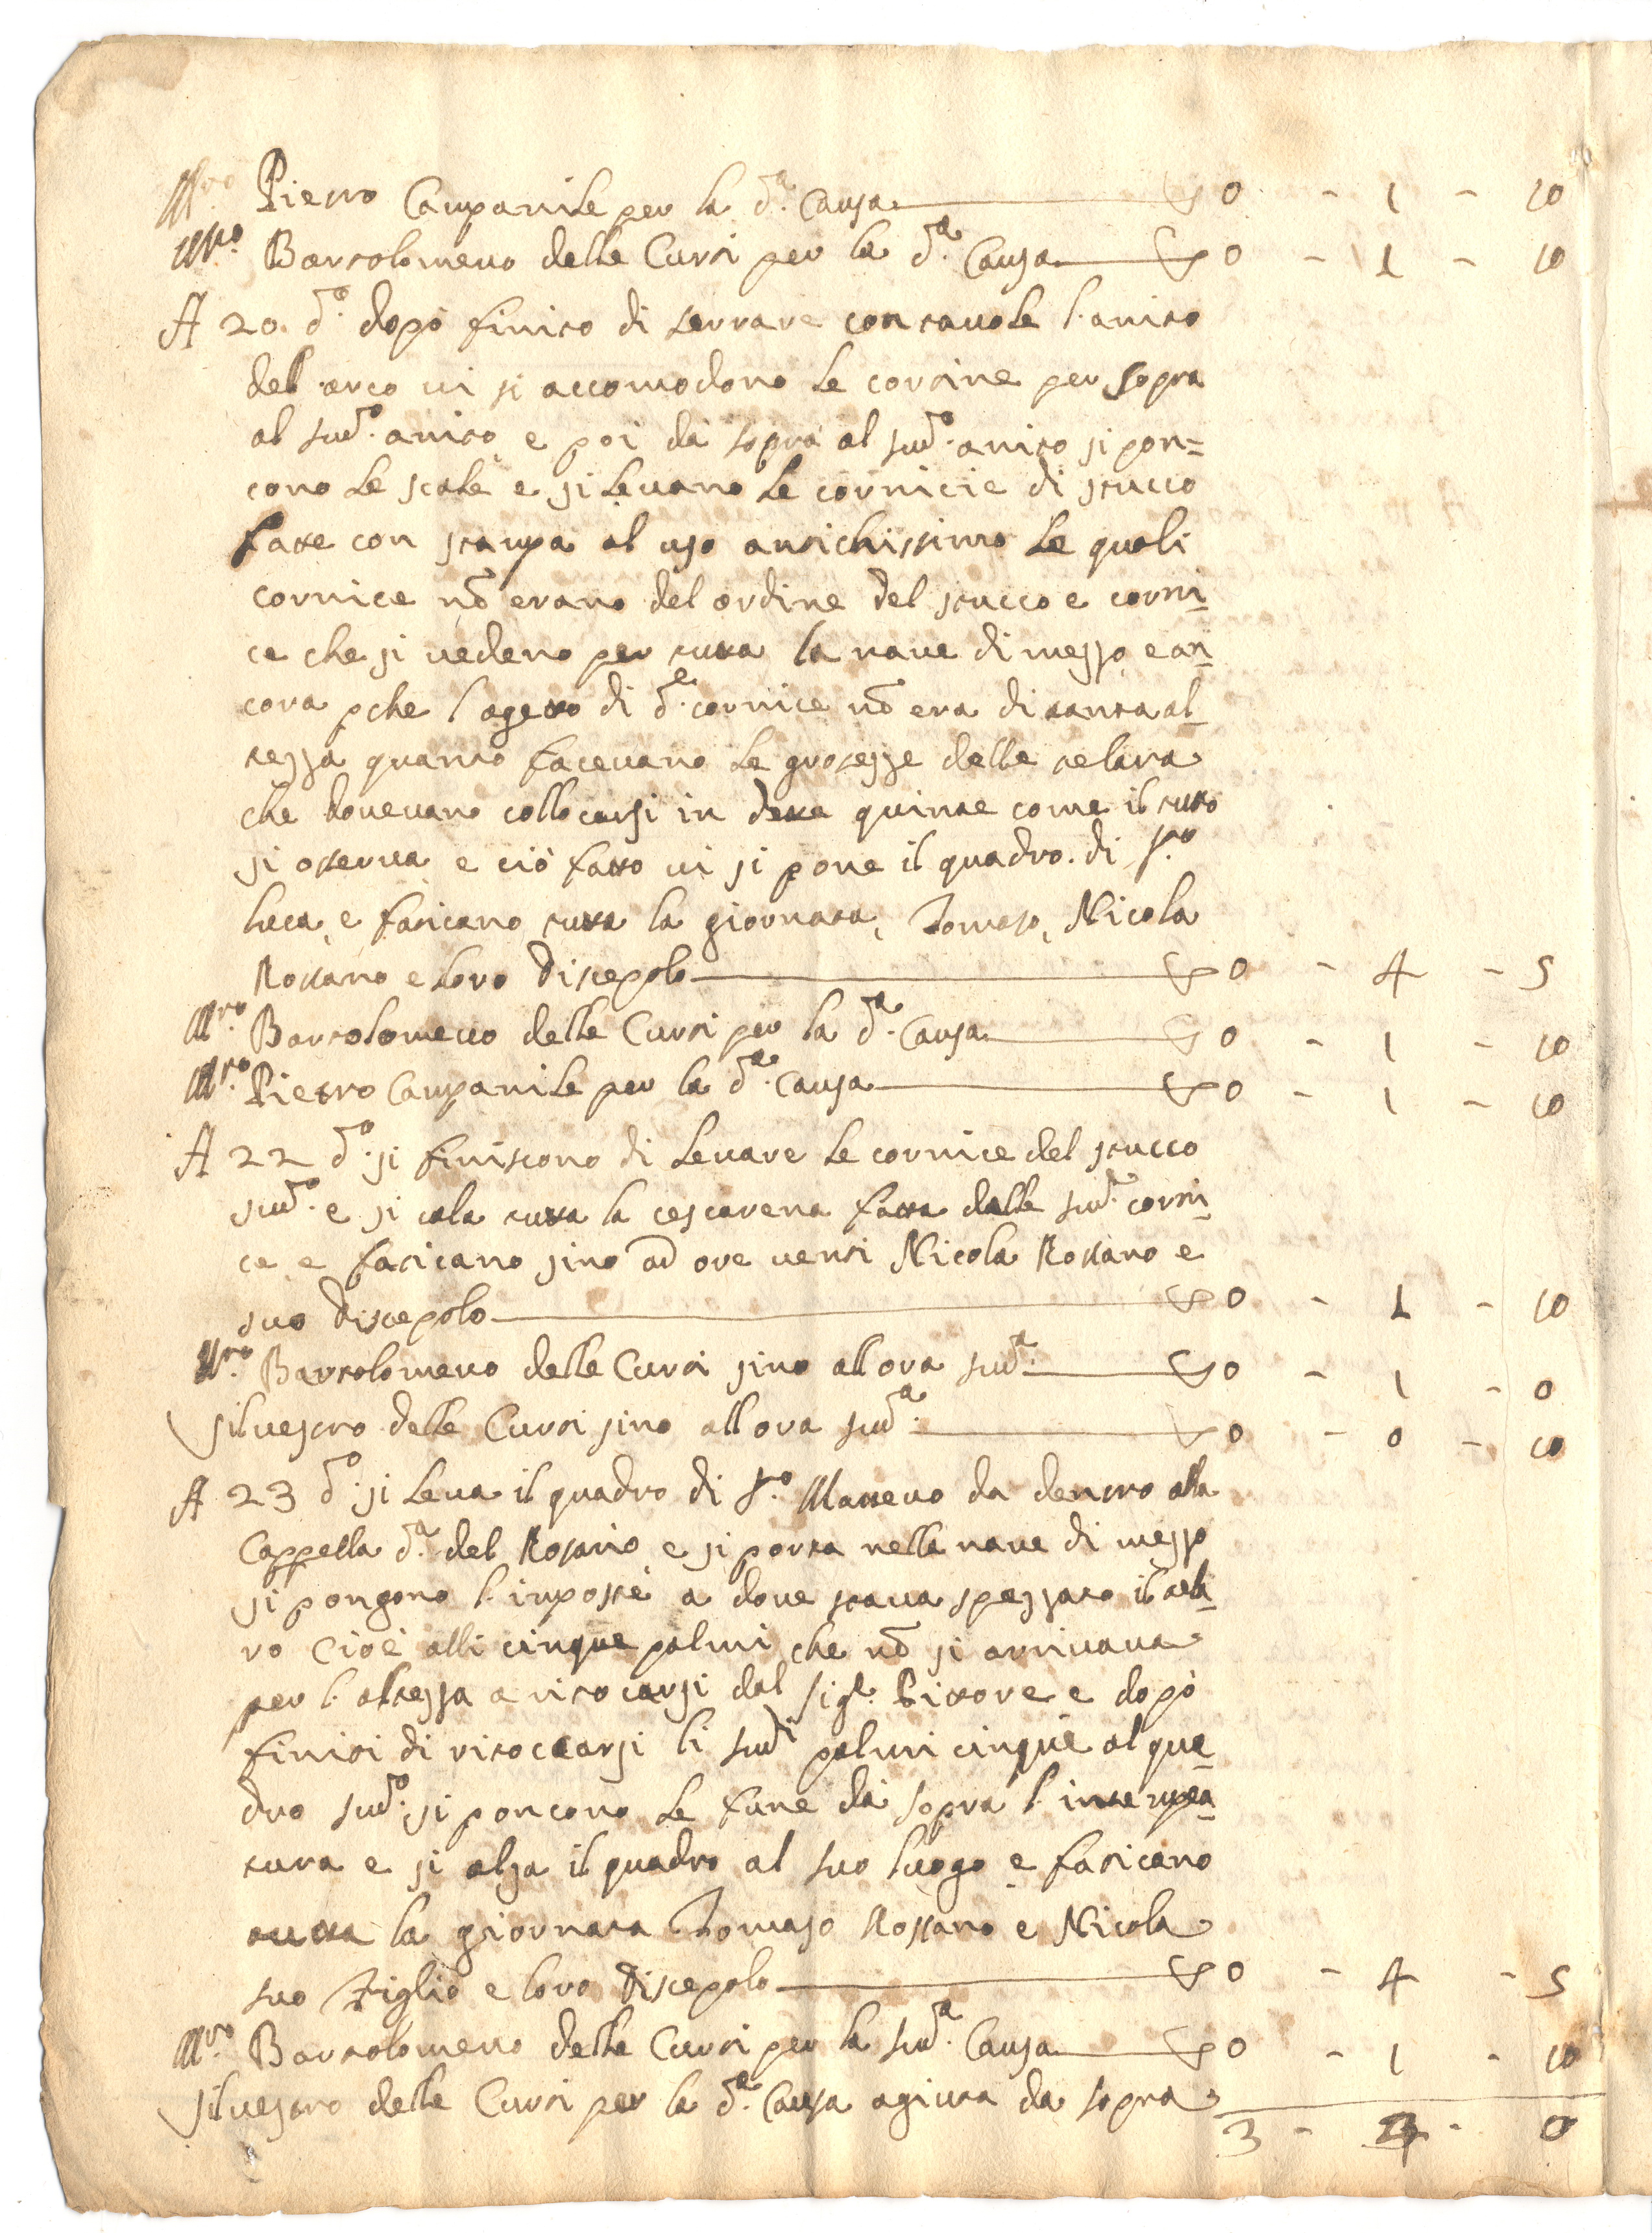 Mro. Pietro Campanile per la da. Causa ——— D 0 - 1 - 10
Mro. Bartolomeuo delle Curti per la da. Causa ——— D 0 - 1 - 10
A 20. do. dopò finito di serrare con tauole l'anito
del arco ui si accomodono le cortine per sopra
al sudo. anito, e poi da sopra al sudo. anito si pon=
cono le scale e si leuano le cornicie di stucco
fatte con stampa al uso antichissimo le quali
cornice nõ erano del ordine del stucco e corni-
ce che si uedeno per tutta la naue di mezzo, e an-
cora pche l'agetto di de. cornice nõ era di tanta al-
tezza quanto faceuano le grosezze delle telara
che doueuano collocarsi in dette quinte come il tutto
si osserua e ciò fatto ui si pone il quadro di Sto.
Luca, e faticano tutta la giornata, Tomaso, Nicola
Rossano e loro discepolo ——— D 0 - 4 - 5
Mro. Bartolomeuo delle Curti per la da. Causa ——— D 0 - 1 - 10
Mro. Pietro Campanile per la da. Causa ——— D 0 - 1 - 10
A 22 do. si finiscono di leuare le cornice del stucco
sudo. e si cala tutta la cescarena fatta dalle sude. corni-
ce e faticano sino ad ore uenti Nicola Rossano e
suo discepolo ——— D 0 - 1 - 10
Mro. Bartolomeuo delle Curti sino all ora suda. ——— D 0 - 1 - 0
Siluestro delle Curti sino all ora suda. ——— D 0 - 0 - 10
A 23 do. si leua il quadro di Sto. Matteuo da dentro alla
Cappella da. del Rosario e si porta nella naue di mezzo
si pongono l'imposte a doue staua spezzato il tela-
ro cioè alli cinque palmi che nõ si arriuaua
per l'altezza a ritocarsi dal Sigr. Pittore e dopò
finiti di ritoccarsi li sudi palmi cinque al qua-
dro sudo. si poncono le fune da sopra l'intempia-
tura e si alza il quadro al suo luogo e faticano
tutta la giornata Tomaso Rossano e Nicola
suo Figlio e loro discepolo ——— D 0 - 4 - 5
Mro. Bartolomeuo delle Curti per la suda. Causa ——— D 0 - 1 - 10
Siluestro delle Curti per la da. Causa agiuta da sopra
3 - - 0